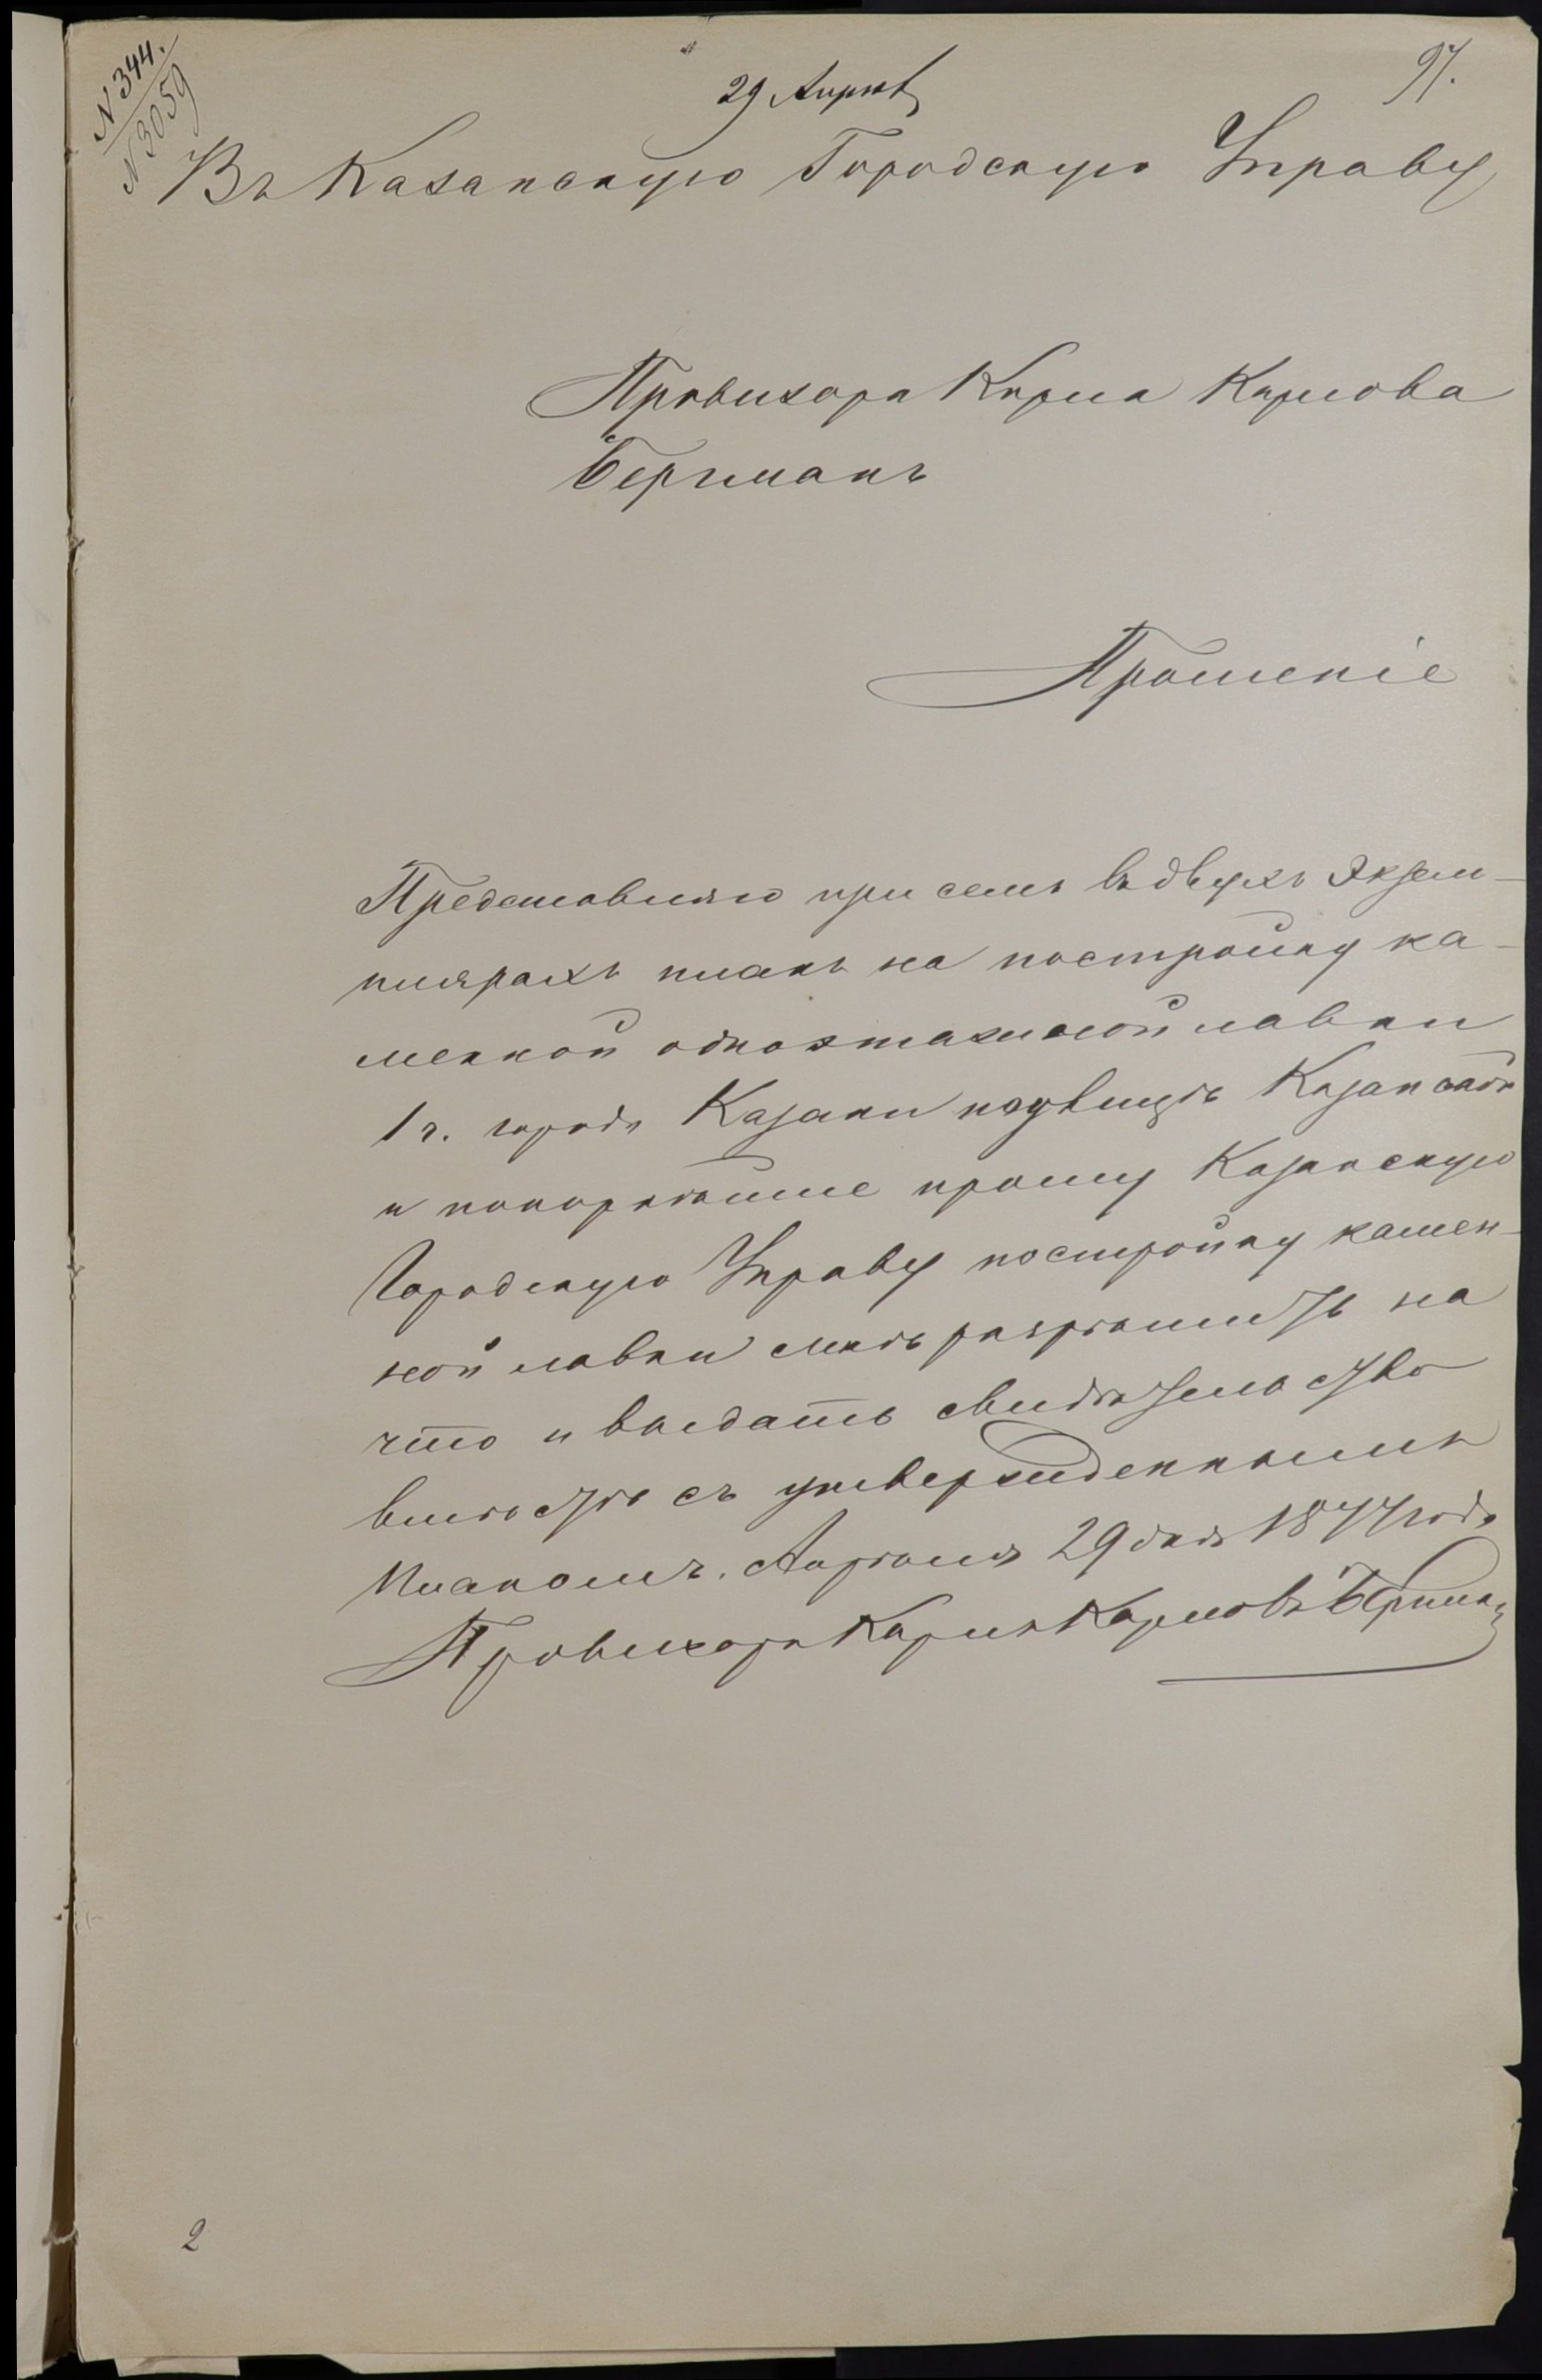 N 344.
N 3059
29 Апрѣл
97.
Въ Казанскую Городскую Управу
Провизора Карла Карлова
Бергманъ
Прошеніе
Представляю при семъ въ двухъ Экзем-
плярахъ планъ на постройку ка-
менной одноэтажной лавки
1 ч. города Казани
и покорнѣйше прошу Казанскую
Городскую Управу постройку камен-
ной лавки мнѣ разрѣшить на
что и выдать свидѣтельство
вмѣстѣ съ утвержденнымъ
планомъ. Апрѣля 29 дня 1877 года
Провизоръ Карлъ Карловъ Бергманъ
2